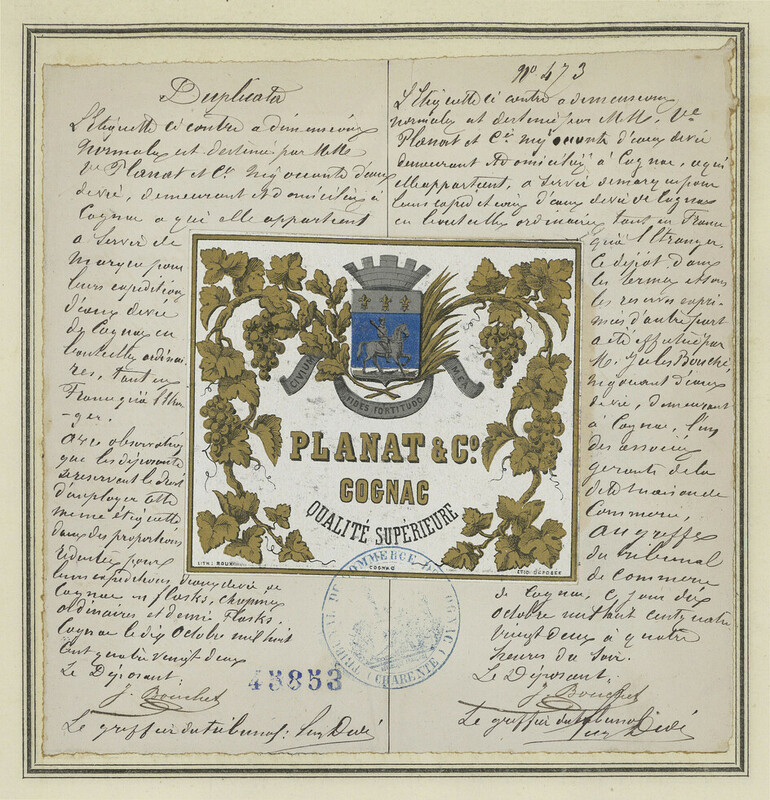 Duplicata
L'Etiquette ci contre a dimensions
normales est destinée par MM.
Ve Planat et Cie négociants d'eaux
devie, demeurant et domiciliés à
Cognac a qui elle appartient
a servir de
marque pour
leurs expéditions
d'eaux devie
de Cognac en
bouteilles ordinai
res, tant en
France qu'à l'étran
-ger.
Avec observation
que les déposants
se reservent le droit
d'employer cette
même étiquette
dans des proportions
réduites pour
leurs expéditions d'eaux devie de
Cognac en flasks, chopines
ordinaires et demi flasks.
Cognac le dix Octobre mil huit
cent quatre vingt deux
Le Déposant:
J. Bouchet
Le greffier du tribunal:
45853
No 473
L'Etiquette ci contre a dimensions
normales est destinée par MM. Ve
Planat et Cie négociants d'eaux devie
demeurant et domiciliés à Cognac, a qui
elle appartient, a servir de marque pour
leurs expéditions d'eaux devie de Cognac
en bouteilles ordinaires tant en France
qu'à l'étranger.
Ce dépôt dans
les termes et sous
les reserves expri
mées d'autre part
a été effectué par
M. Jules Bouché
négociant d'eaux
devie, demeurant
a Cognac, l'un
des associés
gerants de la
dite maison de
Commerce,
au greffe
du tribunal
de Commerce
de Cognac, ce jour dix
Octobre mil huit cent quatre
vingt deux a quatre
heures du soir.
Le Déposant:
J. Bouchet
Le greffier du tribunal
CIVIUM
FIDES FORTITUDO
MEA
PLANAT & CO.
COGNAC
QUALITÉ SUPÉRIEURE
LITH.
COGNAC
ETIQ. DÉPOSÉE
TRIBUNAL DE COMMERCE DE COGNAC
(CHARENTE)